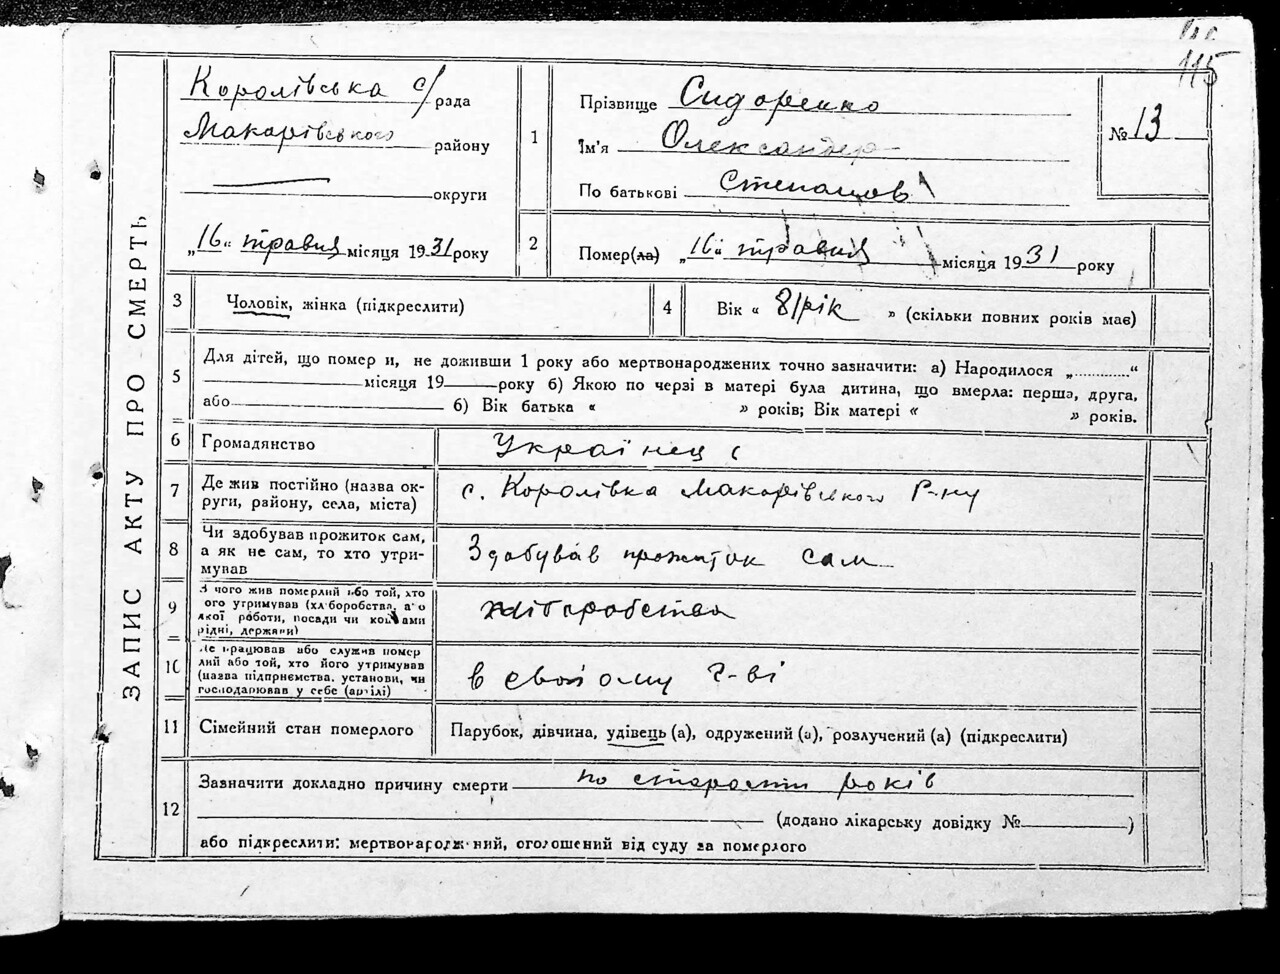 115
ЗАПИС АКТУ ПРО СМЕРТЬ
Королівська с/рада
Макарівського району
округи
„16“ травня місяця 1931 року
1
Прізвище Сидоренко
Ім'я Олександер
По батькові Степанов
№ 13
2
Помер(ла) „16“ травня місяця 1931 року
3
Чоловік, жінка (підкреслити)
4
Вік « 81 рік » (скільки повних років має)
5
Для дітей, що помер и, не доживши 1 року або мертвонароджених точно зазначити: а) Народилося „............“
місяця 19 року б) Якою по черзі в матері була дитина, що вмерла: перша, друга,
або б) Вік батька « » років; Вік матері « » років.
6
Громадянство
Українец
7
Де жив постійно (назва ок-
руги, району, села, міста)
с. Королівка Макарівського Р-ну
8
Чи здобував прожиток сам,
а як не сам, то хто утри-
мував
Здобував прожиток сам
9
З чого жив померлий або той, хто
його утримував (хліборобства, а о
якої роботи, посади чи кош ами
рідні, держави)
хліборобства
10
Де працював або служив помер
лий або той, хто його утримував
(назва підприємства, установи, чи
господарював у себе (артілі)
в своїому г-ві
11
Сімейний стан померлого
Парубок, дівчина, удівець (а), одружений (а), розлучений (а) (підкреслити)
12
Зазначити докладно причину смерти по старости років
(додано лікарську довідку № )
або підкреслити: мертвонароджений, оголошений від суду за померлого